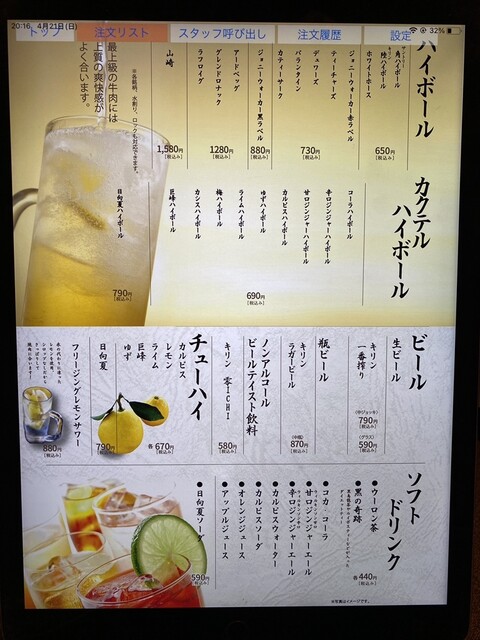 20:16 4月21日(日)
32%
トップ
注文リスト
スタッフ呼び出し
注文履歴
設定
ハイボール
角ハイボール
陸ハイボール
ホワイトホース
650円
[税込み]
ジョニーウォーカー赤ラベル
ティーチャーズ
デュワーズ
バランタイン
カティサーク
730円
[税込み]
ジョニーウォーカー黒ラベル
880円
[税込み]
アードベッグ
グレンドロナック
ラフロイグ
1280円
[税込み]
山崎
1,580円
[税込み]
※各銘柄、水割り、ロックも対応できます。
最上級の牛肉には
上質の爽快感が
よく合います。
カクテル
ハイボール
コーラハイボール
辛口ジンジャーハイボール
甘口ジンジャーハイボール
カルピスハイボール
ゆずハイボール
ライムハイボール
梅ハイボール
カシスハイボール
巨峰ハイボール
690円
[税込み]
日向夏ハイボール
790円
[税込み]
ビール
生ビール
キリン
一番搾り
(中ジョッキ)
790円
[税込み]
(グラス)
590円
[税込み]
瓶ビール
キリン
ラガービール
(中瓶)
870円
[税込み]
ノンアルコール
ビールテイスト飲料
キリン 零ICHI
580円
[税込み]
チューハイ
カルピス
レモン
ライム
巨峰
ゆず
各670円
[税込み]
日向夏
790円
[税込み]
フリージングレモンサワー
氷の代わりに凍った
レモンを使用。
シロップなしだから
さっぱりして
焼肉に合います!
880円
[税込み]
ソフト
ドリンク
●ウーロン茶
●黒の奇跡
●コカ・コーラ
●甘口ジンジャーエール
●辛口ジンジャーエール
●カルピスウォーター
●カルピスソーダ
●オレンジジュース
●アップルジュース
各440円
[税込み]
●日向夏ソーダ
590円
[税込み]
※写真はイメージです。